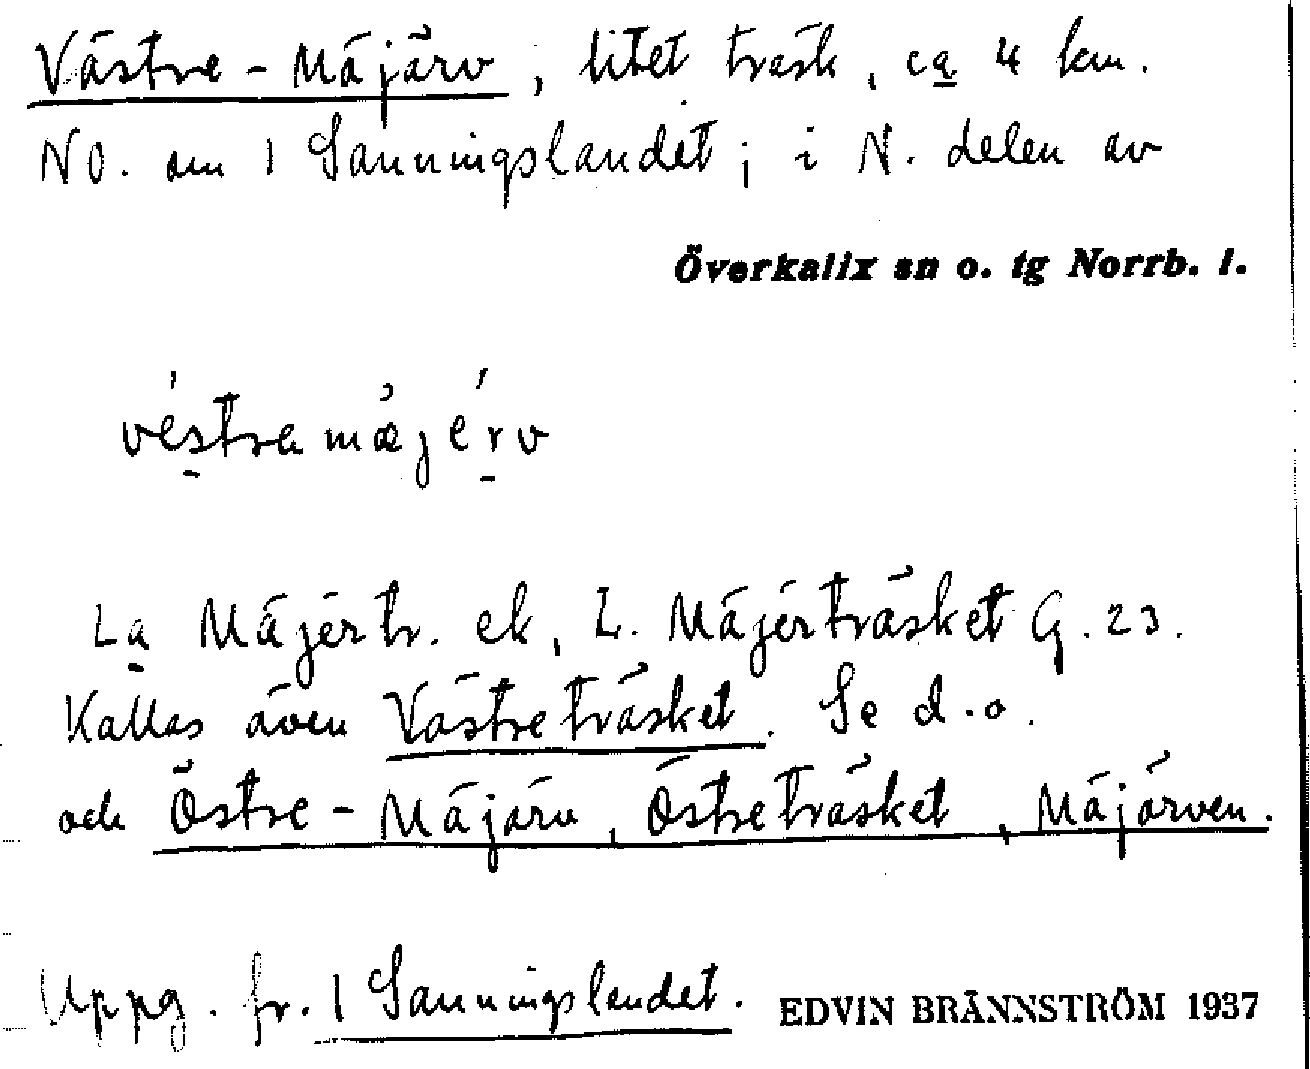 Västre-Mäjärv, litet träsk, ca 4 km.
NO. om 1 Sanningslandet; i N. delen av
Överkalix sn o. tg Norrb. l.
véstramæjérv
La Mäjértr. ek, L. Mäjérträsket G. 23.
Kallas även Västreträsket. Se d.o.
och Östre-Mäjärv, Östreträsket, Mäjärven.
Uppg. fr. 1 Sanningslandet. EDVIN BRÄNNSTRÖM 1937